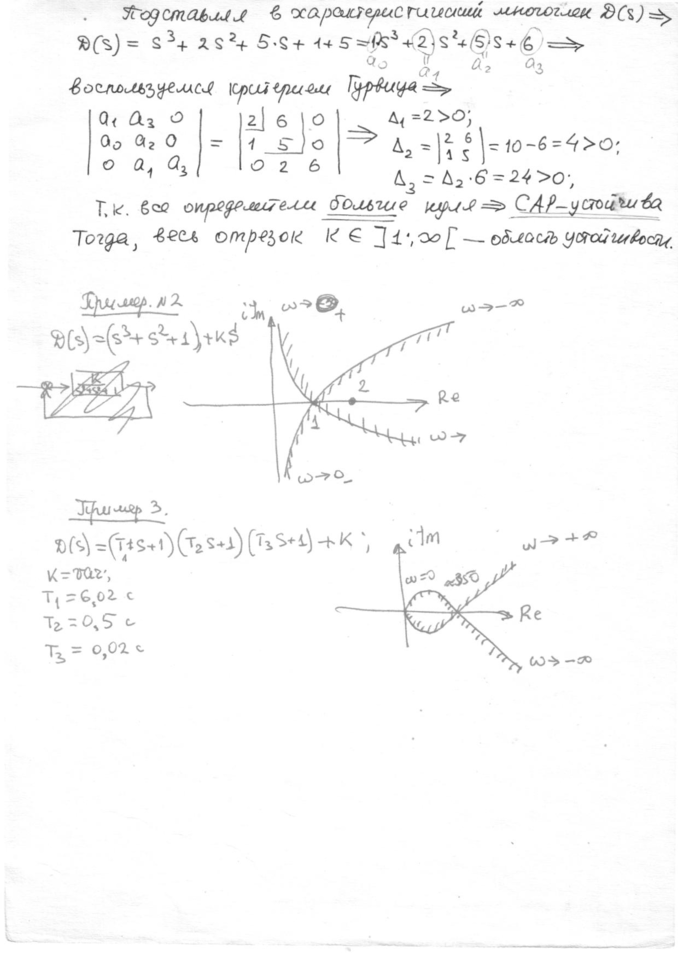 Подставляя в характеристический многочлен D(s) ⇒
D(s) = s³ + 2s² + 5·s + 1 + 5 = 1·s³ + 2·s² + 5·s + 6 ⇒
a₀ a₁ a₂ a₃
воспользуемся критерием Гурвица ⇒
|a₁ a₃ 0| = |2 6 0| ⇒ Δ₁ = 2 > 0;
|a₀ a₂ 0| |1 5 0| Δ₂ = |2 6; 1 5| = 10 - 6 = 4 > 0;
|0 a₁ a₃| |0 2 6| Δ₃ = Δ₂·6 = 24 > 0;
Т.к. все определители больше нуля ⇒ САР-устойчива
Тогда, весь отрезок K ∈ ]1; ∞[ — область устойчивости.
Пример. N2
D(s) = (s³ + s² + 1) + KS
iIm
ω → +
ω → -∞
2
Re
1
ω →
ω → 0₋
Пример 3.
D(s) = (T₁S+1)(T₂S+1)(T₃S+1) + K;
K = var;
T₁ = 6,02 с
T₂ = 0,5 с
T₃ = 0,02 с
iIm
ω → +∞
ω=0
≈350
Re
ω → -∞